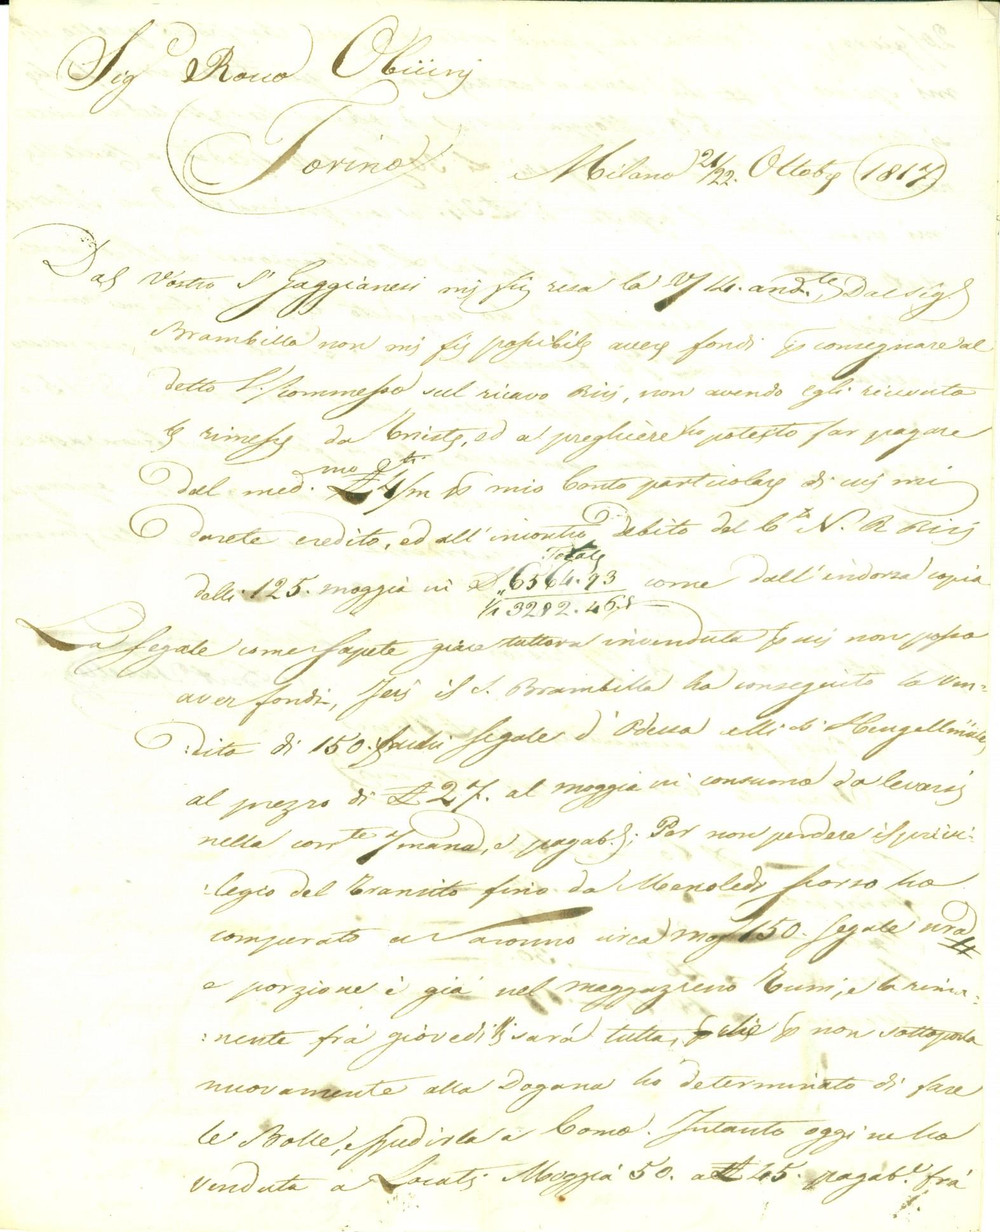 Sig.r Rocco
Torino
Milano 21/22. Ottobe 1817
Dal Vostro S.r Gaggianesi mi fù reca la 14. and.te, Dal Sig.r
Brambilla non mi fù possibile avere fondi consegnare al
detto S.r Commesso sul ricavo Risi, non avendo egli ricevuto
rimesse da Trieste, ed a preghiere ho potuto far pagare
dal med.mo mio Conto particolare di cui mi
darete credito, ed all'incontro Debito del N. R Risi
Totale
delli 125. moggia in 6564.93 come dall'indorsa copia
3282.46.
La segale come sapete giace tuttora invenduta cui non posso
aver fondi, Jeri il S. Brambilla ha conseguito la ven-
:dita di 150. segale d'Odessa alli S.i
al prezzo di 27. al moggia in consumo da levarsi
nella corr.te 7mana, e pagab.; Per non perdere il privi:
:legio del Transito fino da Mercoledi scorso ha
comperato a circa mog. 150. segale
e porzione è già nel maggazzeno, e la rima:
:nente frà giovedì sarà tutta, non sottoporla
nuovamente alla Dogana ho determinato di fare
le Bolle, e spedirla a Como. Intanto oggi ne ha
venduta a Locati Moggia 50. a 45. pagab.e frà